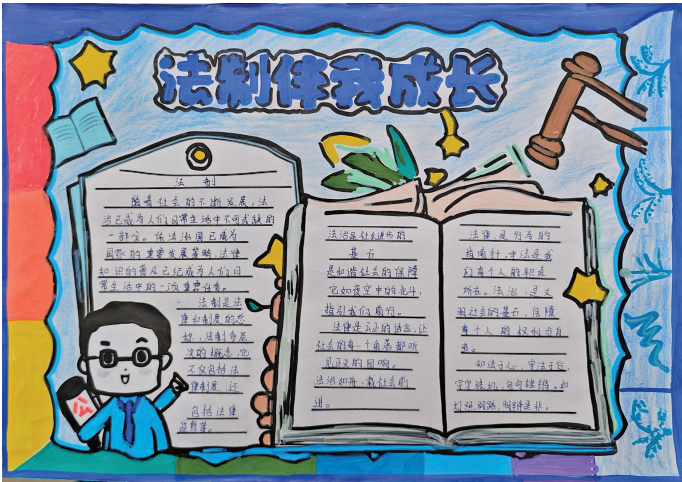 法制伴我成长
法制
随着社会的不断发展,法
治已成为人们日常生活中不可或缺的
一部分。依法治国已成为
国家的重要发展策略,法律
知识的普及已经成为人们日
常生活中的一项重要任务。
法制是法
律和制度的总
称,法制多层
次的概念,它
不仅包括法
律制度,还
包括法律
法治是社会进步的
基石
是和谐社会的保障
它如夜空中的北斗,
指引我们前行。
法律是公正的语言,让
社会的每一个角落都听
见正义的回响。
法治如舟,载社会前
进。
法律,是行为的
指南针,守法是我
们每个人的职责
所在。法治,是文
明社会的基石,保障
每个人的权利与自
由。
知法于心,守法于行,